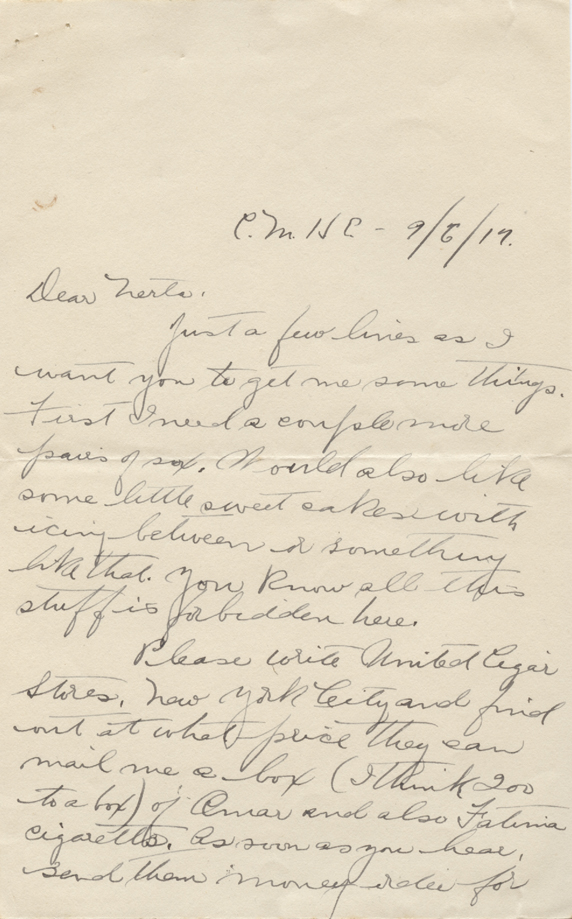 C.M.H.C - 9/6/17.
Dear Nerta.
Just a few lines as I
want you to get me some things.
First I need a couple more
pairs of sox. Would also like
some little sweet cakes with
icing between or something
like that. You know all this
stuff is forbidden here.
Please write United Cigar
Stores, New York City and find
out at what price they can
mail me a box (I think 200
to a box) of Omar and also Fatima
cigaretts. As soon as you hear,
send them money order for